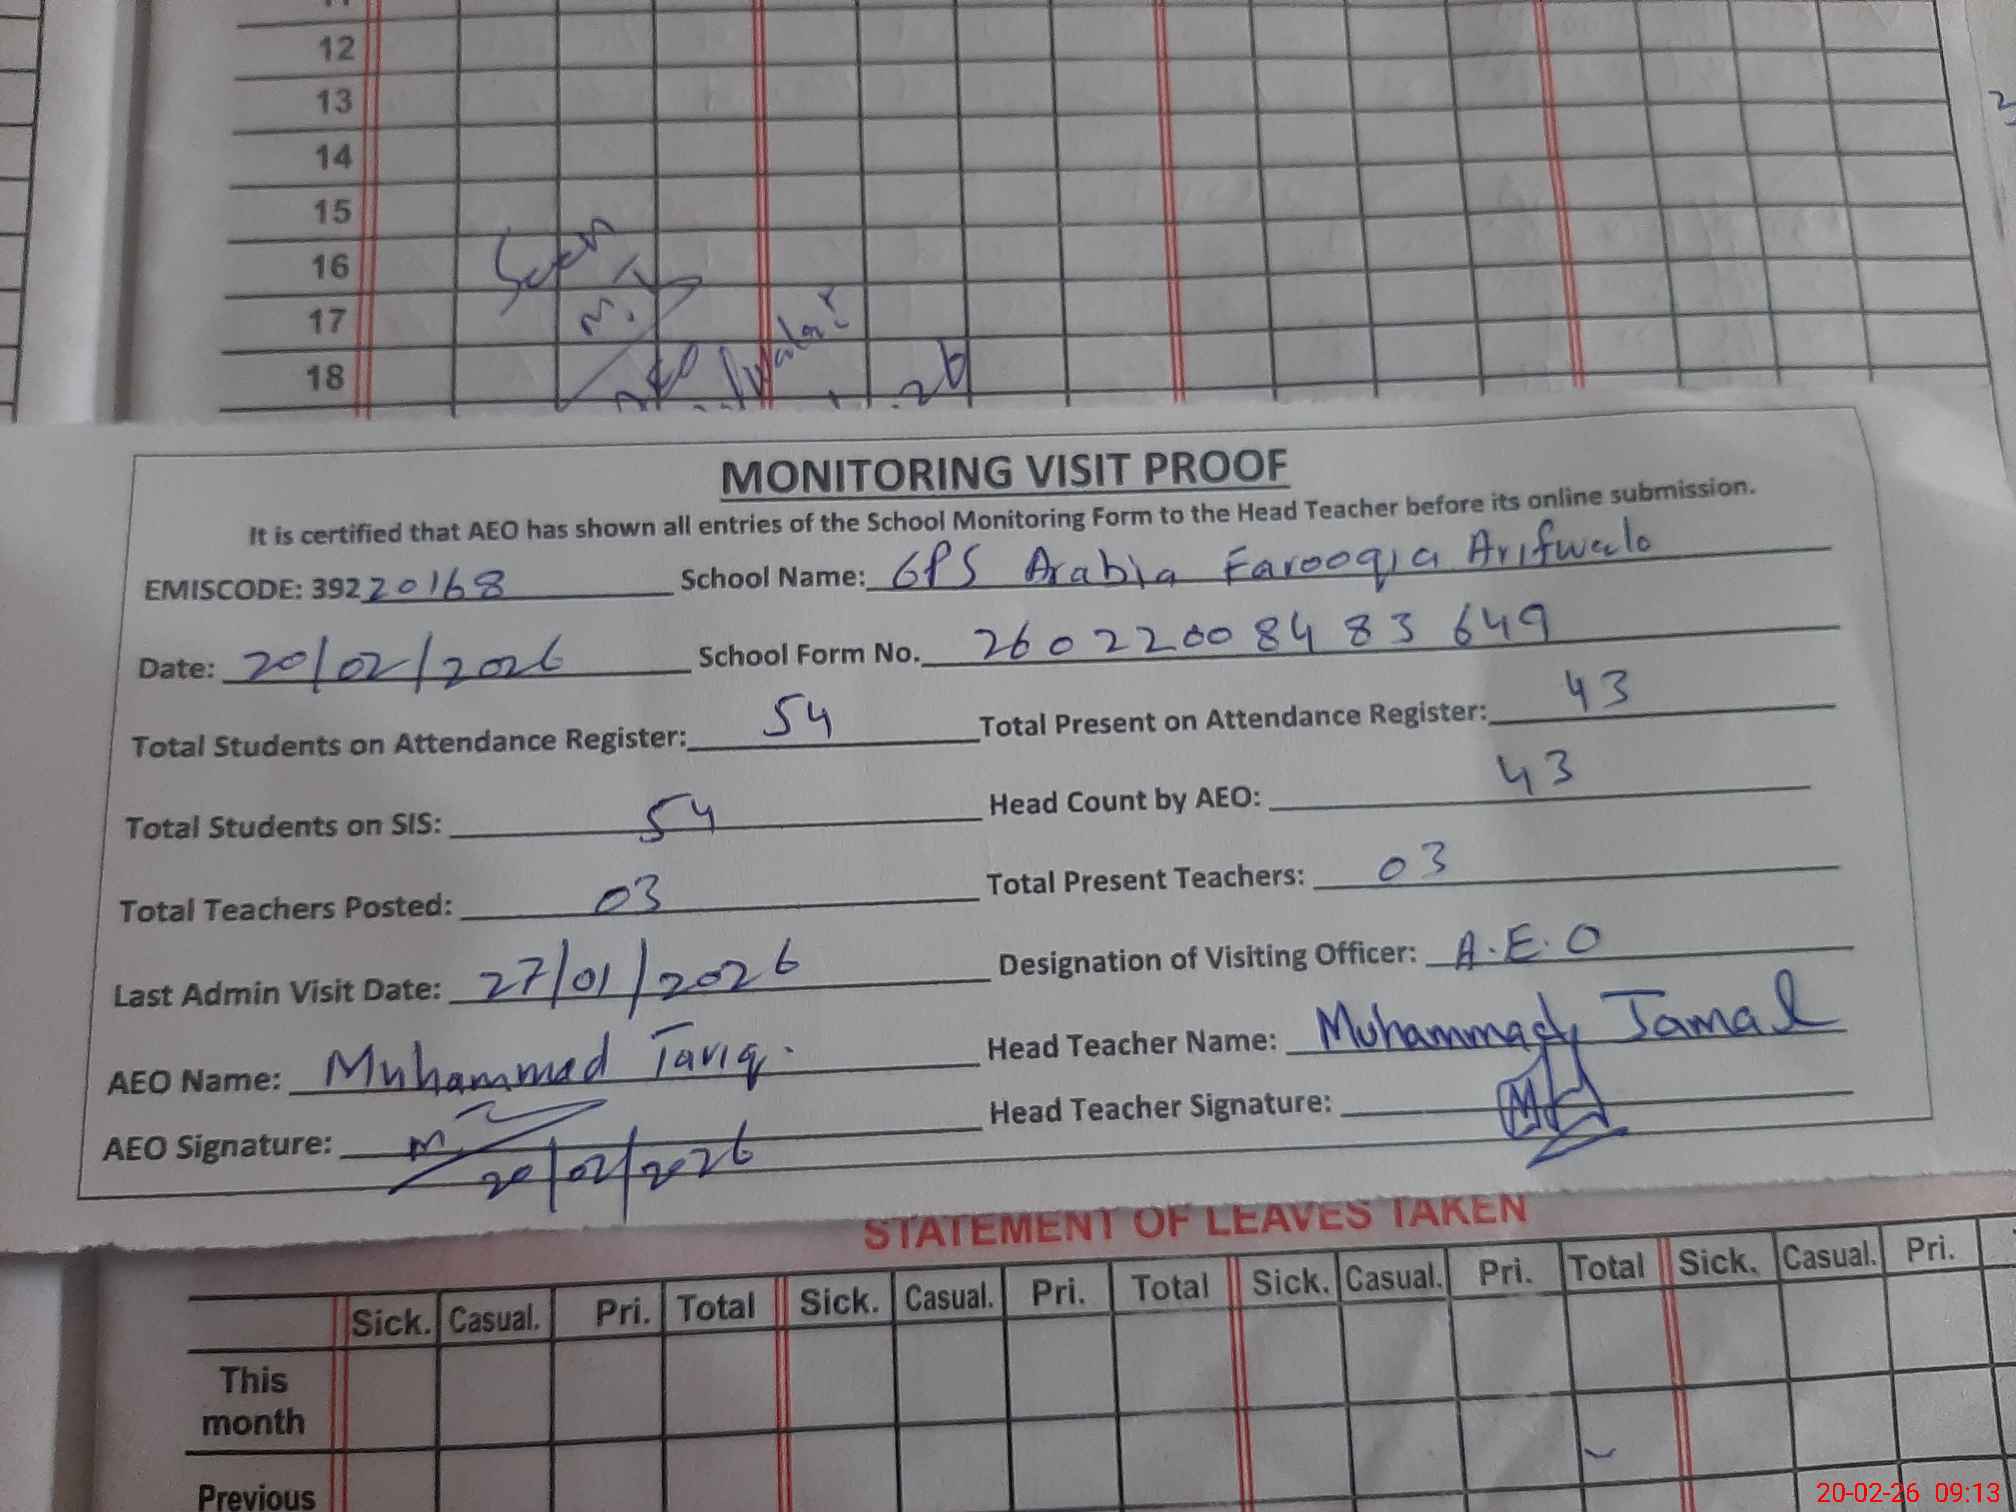 12
13
14
15
16
17
18
Seen
M.T
AEO
26
MONITORING VISIT PROOF
It is certified that AEO has shown all entries of the School Monitoring Form to the Head Teacher before its online submission.
EMISCODE: 39220168 School Name: GPS Arabia Farooqia Arifwala
Date: 20/02/2026 School Form No. 260220084 83 649
Total Students on Attendance Register: 54 Total Present on Attendance Register: 43
Total Students on SIS: 54 Head Count by AEO: 43
Total Teachers Posted: 03 Total Present Teachers: 03
Last Admin Visit Date: 27/01/2026 Designation of Visiting Officer: A.E.O
AEO Name: Muhammad Tariq. Head Teacher Name: Muhammad Jamal
AEO Signature: 20/02/2026 Head Teacher Signature:
STATEMENT OF LEAVES TAKEN
Sick. Casual. Pri. Total Sick. Casual. Pri. Total Sick. Casual. Pri. Total Sick. Casual. Pri.
This month
Previous
20-02-26 09:13